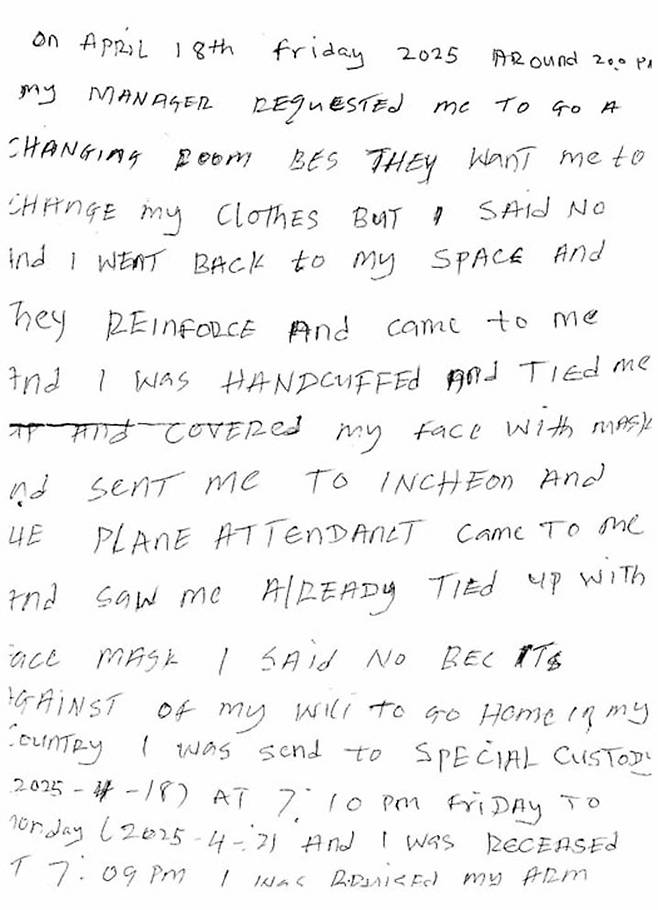 On APRIL 18th friday 2025 AROund 200 PM
my MANAGER REQUESTED me TO GO A
CHANGING ROOM BES THEY WANT me to
CHANGE my CLOTHES BUT I SAId NO
And I WENT BACK to my SPACE And
They REINFORCE And came to me
And I WAS HANDCUFFEd And TIEd me
COVERed my face with MASK
and SENT ME TO INCHEON And
THE PLANE ATTENDANCT came TO me
And SAW me AlREADy TIEd up with
face MASK I SAid NO BEC ITS
AGAINST OF my will to GO HOME in my
COUNTRY I was send to SPECIAL CUSTODY
2025-4-18) AT 7:10 pm FRIDAY TO
monday (2025-4-21 And I was RECEASEd
AT 7:09 pm I was my ARM